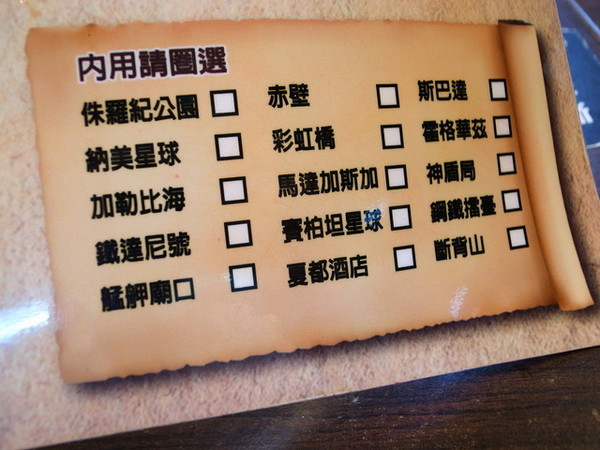 內用請圈選
侏羅紀公園
納美星球
加勒比海
鐵達尼號
艋舺廟口
赤壁
彩虹橋
馬達加斯加
賽柏坦星球
夏都酒店
斯巴達
霍格華茲
神盾局
鋼鐵擂臺
斷背山